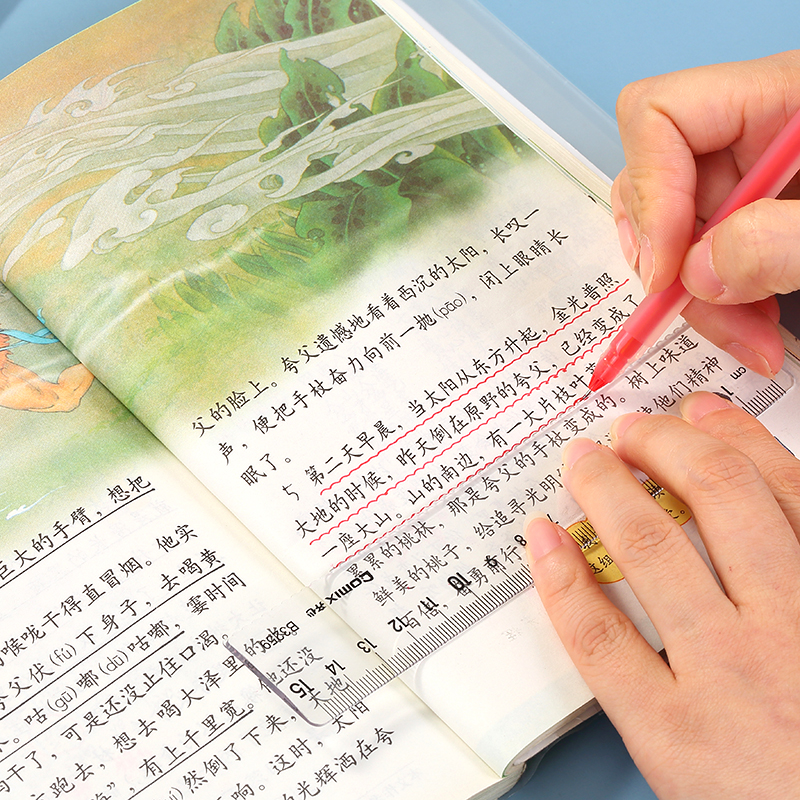 巨大的手臂，想把
喉咙干得直冒烟。他实
夸父伏(fú)下身子，去喝黄
咕(gū)嘟(dū)咕嘟，霎时间
干了，可是还没止住口渴。
跑去，想去喝大泽里的
”，有上千里宽。他还没
然倒了下来，大地
响。这时，太阳
光辉洒在夸
父的脸上。夸父遗憾地看着西沉的太阳，长叹一
声，便把手杖奋力向前一抛(pāo)，闭上眼睛长
眠了。
5 第二天早晨，当太阳从东方升起，金光普照
大地的时候，昨天倒在原野的夸父，已经变成了
一座大山。山的南边，有一大片枝叶
累累的桃林，那是夸父的手杖变成的。树上味道
鲜美的桃子，给追寻光明 他们精神
百倍，奋勇前行
Comix 齐心
B3259
15 14 13 12 11 10 9 8 7
1 cm